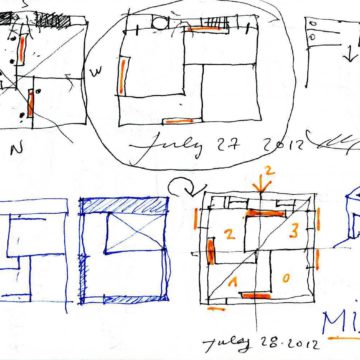 S
W
N
July 27 2012
2
2 3
1 0
July 28.2012